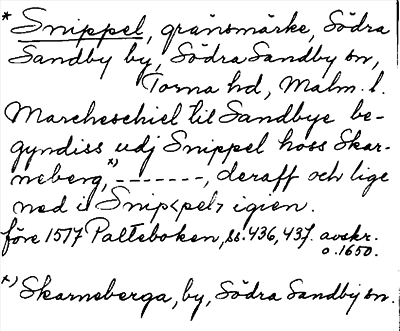 * Snippel, gränsmärke, Södra
Sandby by, Södra Sandby sn,
Torna hd, Malm. l.
Marcheschiel til Sandbye be-
gyndiss udj Snippel hoss Skar-
neberg,*) -------, deraff och lige
ned i Snip<pel> igien.
före 1517 Palteboken, ss. 436, 437. avskr.
o. 1650.
*) Skarneberga, by, Södra Sandby sn.